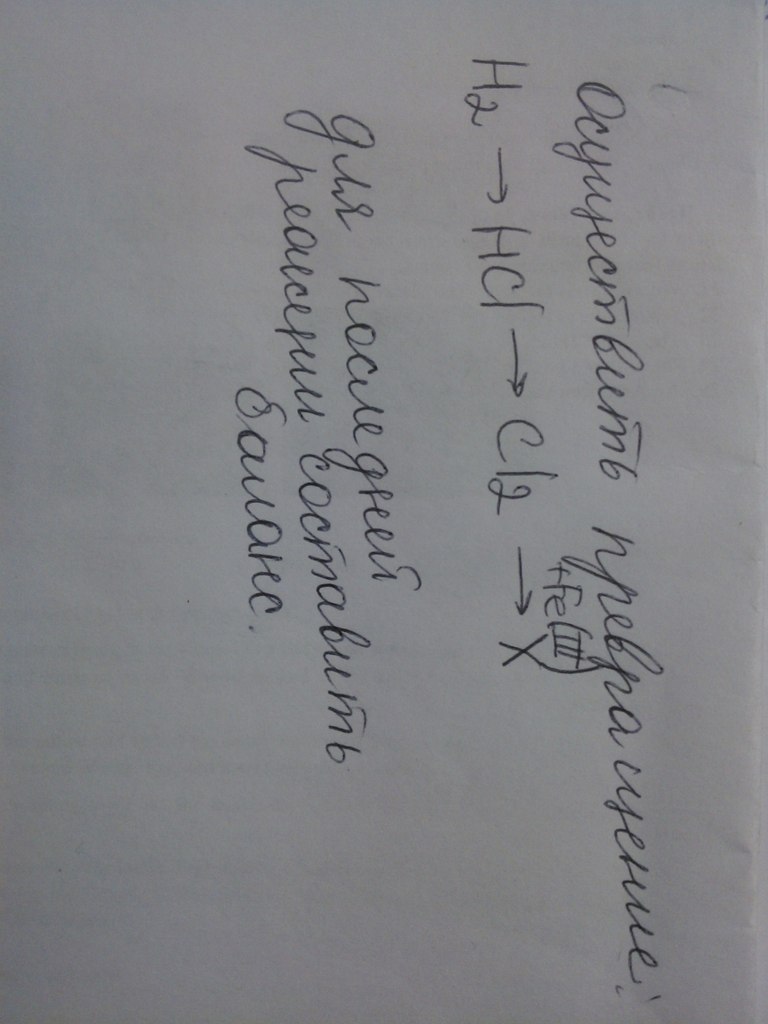 Осуществить превращение:
H2 → HCl → Cl2 →+Fe(III) X
Для последней
реакции составить
баланс.